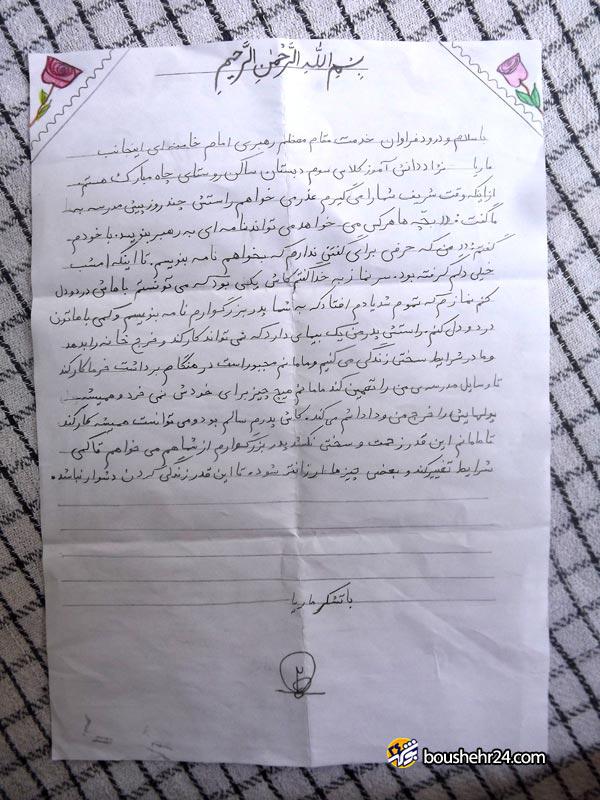 بِسْمِ اللّٰهِ الرَّحْمٰنِ الرَّحیمِ
باسلام و درود فراوان خدمت مقام معظم رهبری امام خامنه ای اینجانب
ماریا نژاد دانش آموز کلاس سوم دبستان ساکن روستای چاه مبارک هستم.
از اینکه وقت شریف شما را می گیرم عذر می خواهم راستش چند روز پیش مدرسه به ما
گفت: «بچه ها هر کی می خواهد می تواند نامه ای به رهبر بنویسد. با خودم
گفتم: «من که حرفی برای گفتن ندارم که بخواهم نامه بنویسم. تا اینکه امشب
خیلی دلم گرفته بود. سر نماز به خدا گفتم کاش یکی بود که می تونستم باهاش درد و دل
کنم نمازم که تموم شد یادم افتاد که به شما پدر بزرگوارم نامه بنویسم و کمی باهاتون
درد و دل کنم. راستش پدر من یک بیماری دارد که نمی تواند کار کند و خرج خانه را بدهد
و ما در شرایط سختی زندگی می کنیم و مامانم مجبور است در هنگام برداشت خرما کار کند
تا وسایل مدرسه ی من را تهیه کند مامانم هیچ چیز برای خودش نمی خرد و همیشه
پولهایش را خرج من و داداشم می کند. کاش پدرم سالم بود و می توانست همیشه کار کند
تا مامانم این قدر زحمت و سختی نکشد پدر بزرگوارم از شما هم می خواهم تا کمی
شرایط تغییر کند و بعضی چیزها ارزانتر شود تا این قدر زندگی کردن دشوار نباشد.
با تشکر ماریا
boushehr24.com